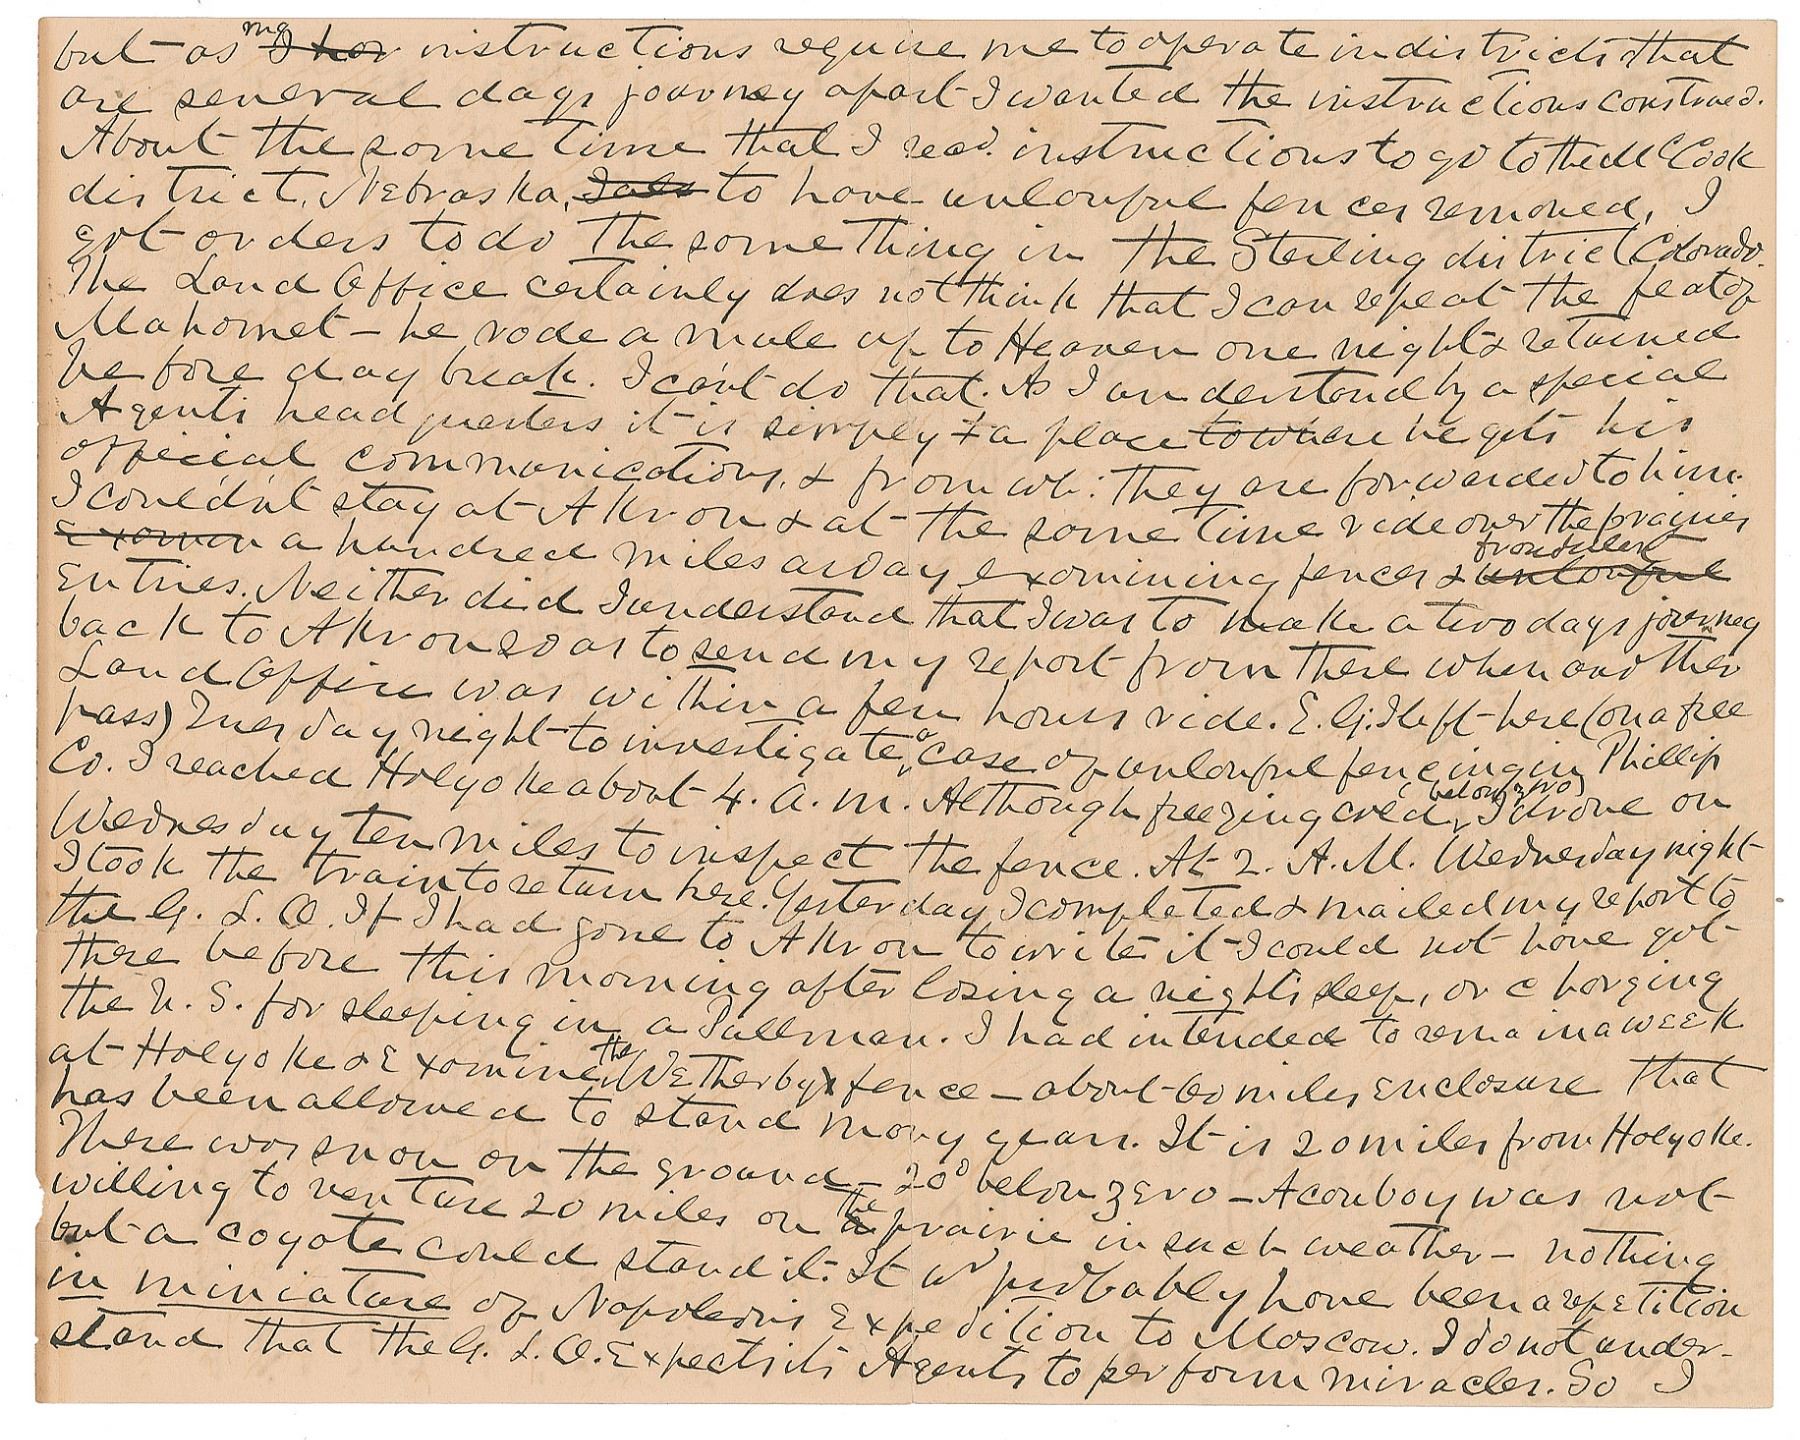 but as my I hav instructions require me to operate in districts that
are several days journey apart I wanted the instructions construed.
About the same time that I recd. instructions to go to the McCook
district, Nebraska, I als to have unlawful fences removed, I
got orders to do the same thing in the Sterling district Colorado.
The Land Office certainly does not think that I can repeat the feat of
Mahomet – he rode a mule up to Heaven one night & returned
before day break. I can't do that. As I understand by a special
Agents headquarters it is simply a place to where he gets his
official communications, & from wh: they are forwarded to him.
I couldn't stay at Akron & at the same time ride over the prairies
Examin a hundred miles a day examining fences & unlawful fraudulent
Entries. Neither did I understand that I was to make a two days journey
back to Akron so as to send my report from there when another
Land Office was within a few hours ride. E.G. I left here (on a free
pass) Tuesday night to investigate a case of unlawful fencing in Phillip
Co. I reached Holyoke about 4. a.m. Although freezing cold, (below zero) I drove on
Wednesday ten miles to inspect the fence. At 2. A.M. Wednesday night
I took the train to return here. Yesterday I completed & mailed my report to
the G. L. O. If I had gone to Akron to write it I could not have got
there before this morning after losing a night's sleep, or charging
the U. S. for sleeping in a Pullman. I had intended to remain a week
at Holyoke & Examine the Wetherby fence – about 60 miles Enclosure that
has been allowed to stand many years. It is 20 miles from Holyoke.
There was snow on the ground – 20° below zero – A cowboy was not
willing to venture 20 miles on the prairie in such weather – nothing
but a coyote could stand it. It wd probably have been a repetition
in miniature of Napoleons Expedition to Moscow. I do not under-
stand that the G. L. O. Expects its Agents to perform miracles. So I